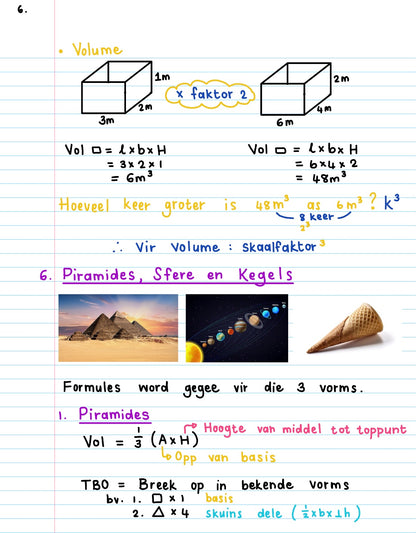 6.
• Volume
1m
2m
3m
x faktor 2
2m
4m
6m
Vol □ = l x b x H
= 3 x 2 x 1
= 6m³
Vol □ = l x b x H
= 6 x 4 x 2
= 48m³
Hoeveel keer groter is 48m³ as 6m³? k³
8 keer
2³
∴ Vir volume : skaalfaktor³
6. Piramides, Sfere en Kegels
Formules word gegee vir die 3 vorms.
1. Piramides
Vol = 1/3 (A x H)
Hoogte van middel tot toppunt
Opp van basis
TBO = Breek op in bekende vorms
bv. 1. □ x 1 basis
2. △ x 4 skuins dele (1/2 x b x ⊥h)